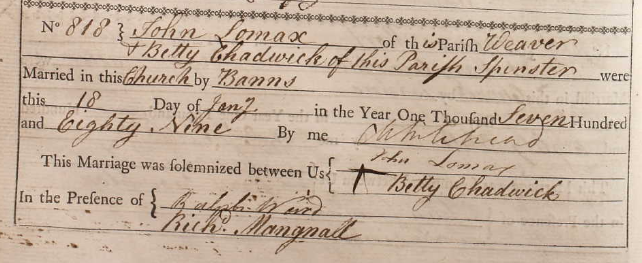 No 818 } John Lomax of this Parish Weaver
& Betty Chadwick of this Parish Spinster were
Married in this Church by Banns
this 18 Day of Jany in the Year One Thousand Seven Hundred
and Eighty Nine By me
This Marriage was solemnized between Us { John Lomax
Betty Chadwick
In the Presence of { Ralph Ward
Richd. Mangnall